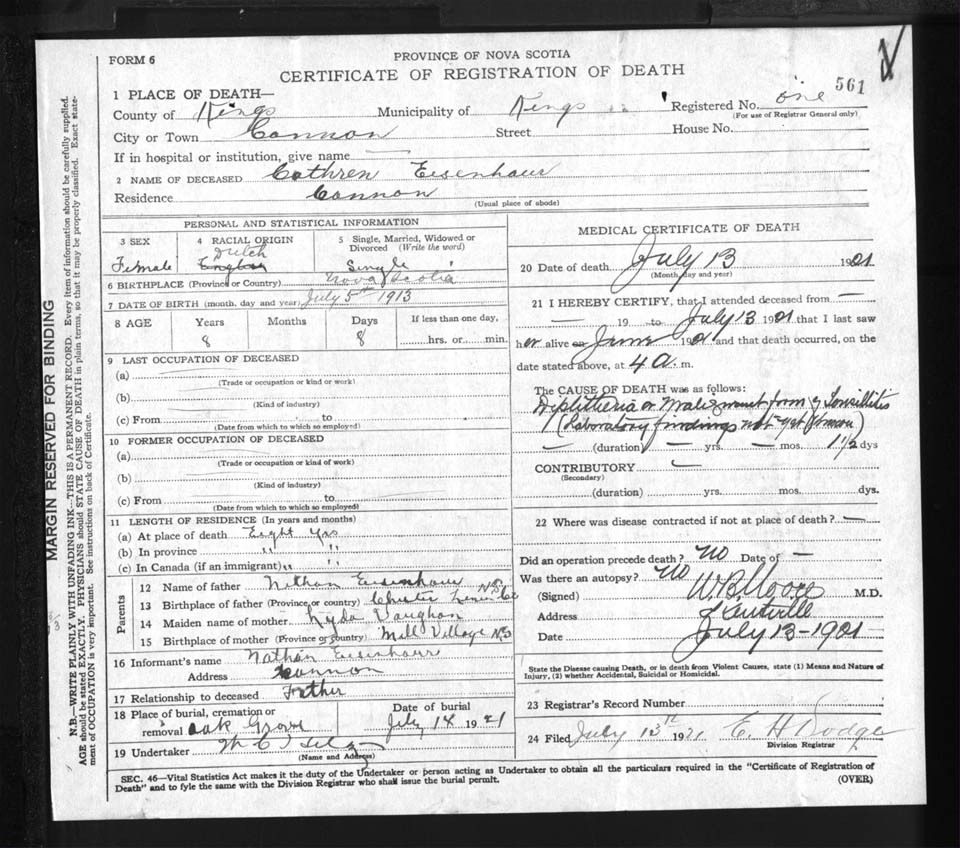 FORM 6
PROVINCE OF NOVA SCOTIA
CERTIFICATE OF REGISTRATION OF DEATH
561
1 PLACE OF DEATH—
County of Kings Municipality of Kings Registered No. one
(For use of Registrar General only)
City or Town Cannon Street House No.
If in hospital or institution, give name —
2 NAME OF DECEASED Cathren Eisenhaur
Residence Cannon
(Usual place of abode)
PERSONAL AND STATISTICAL INFORMATION
3 SEX Female
4 RACIAL ORIGIN Dutch English
5 Single, Married, Widowed or Divorced (Write the word) Single
6 BIRTHPLACE (Province or Country) Nova Scotia
7 DATE OF BIRTH (month, day and year) July 5th 1913
8 AGE Years Months Days If less than one day,
8 8 hrs. or min.
9 LAST OCCUPATION OF DECEASED
(a)
(Trade or occupation or kind or work)
(b)
(Kind of industry)
(c) From to
(Date from which to which so employed)
10 FORMER OCCUPATION OF DECEASED
(a)
(Trade or occupation or kind of work)
(b)
(Kind of industry)
(c) From to
(Date from which to which so employed)
11 LENGTH OF RESIDENCE (In years and months)
(a) At place of death Eight yrs
(b) In province " "
(c) In Canada (if an immigrant) " "
Parents
12 Name of father Nathan Eisenhaur
13 Birthplace of father (Province or country) Chester Lunen Co NS
14 Maiden name of mother Lyda Vaughan
15 Birthplace of mother (Province or country) Mill Village NS
16 Informant's name Nathan Eisenhaur
Address Cannon
17 Relationship to deceased Father
18 Place of burial, cremation or removal Oak Grove
Date of burial July 14 1921
19 Undertaker
(Name and Address)
MEDICAL CERTIFICATE OF DEATH
20 Date of death July 13 1921
(Month, day and year)
21 I HEREBY CERTIFY, that I attended deceased from —
— 19 to July 13 1921 that I last saw
her alive on June 1921 and that death occurred, on the
date stated above, at 4 a. m.
The CAUSE OF DEATH was as follows:
Diphtheria or Malignant form of Tonsillitis
(Laboratory findings not yet known)
— (duration) — yrs. — mos. 1½ dys
CONTRIBUTORY —
(Secondary)
(duration) yrs. mos. dys.
22 Where was disease contracted if not at place of death? —
Did an operation precede death? No Date of —
Was there an autopsy? No
(Signed) W. B. Moore M.D.
Address Kentville
Date July 13-1921
State the Disease causing Death, or in death from Violent Causes, state (1) Means and Nature of
Injury, (2) whether Accidental, Suicidal or Homicidal.
23 Registrar's Record Number
24 Filed July 13th 1921 E. H Dodge
Division Registrar
SEC. 46—Vital Statistics Act makes it the duty of the Undertaker or person acting as Undertaker to obtain all the particulars required in the "Certificate of Registration of
Death" and to fyle the same with the Division Registrar who shall issue the burial permit.
(OVER)
MARGIN RESERVED FOR BINDING
N.B.—WRITE PLAINLY WITH UNFADING INK—THIS IS A PERMANENT RECORD. Every item of information should be carefully supplied.
AGE should be stated EXACTLY. PHYSICIANS should STATE CAUSE OF DEATH in plain terms, so that it may be properly classified. Exact state-
ment of OCCUPATION is very important. See instructions on back of Certificate.